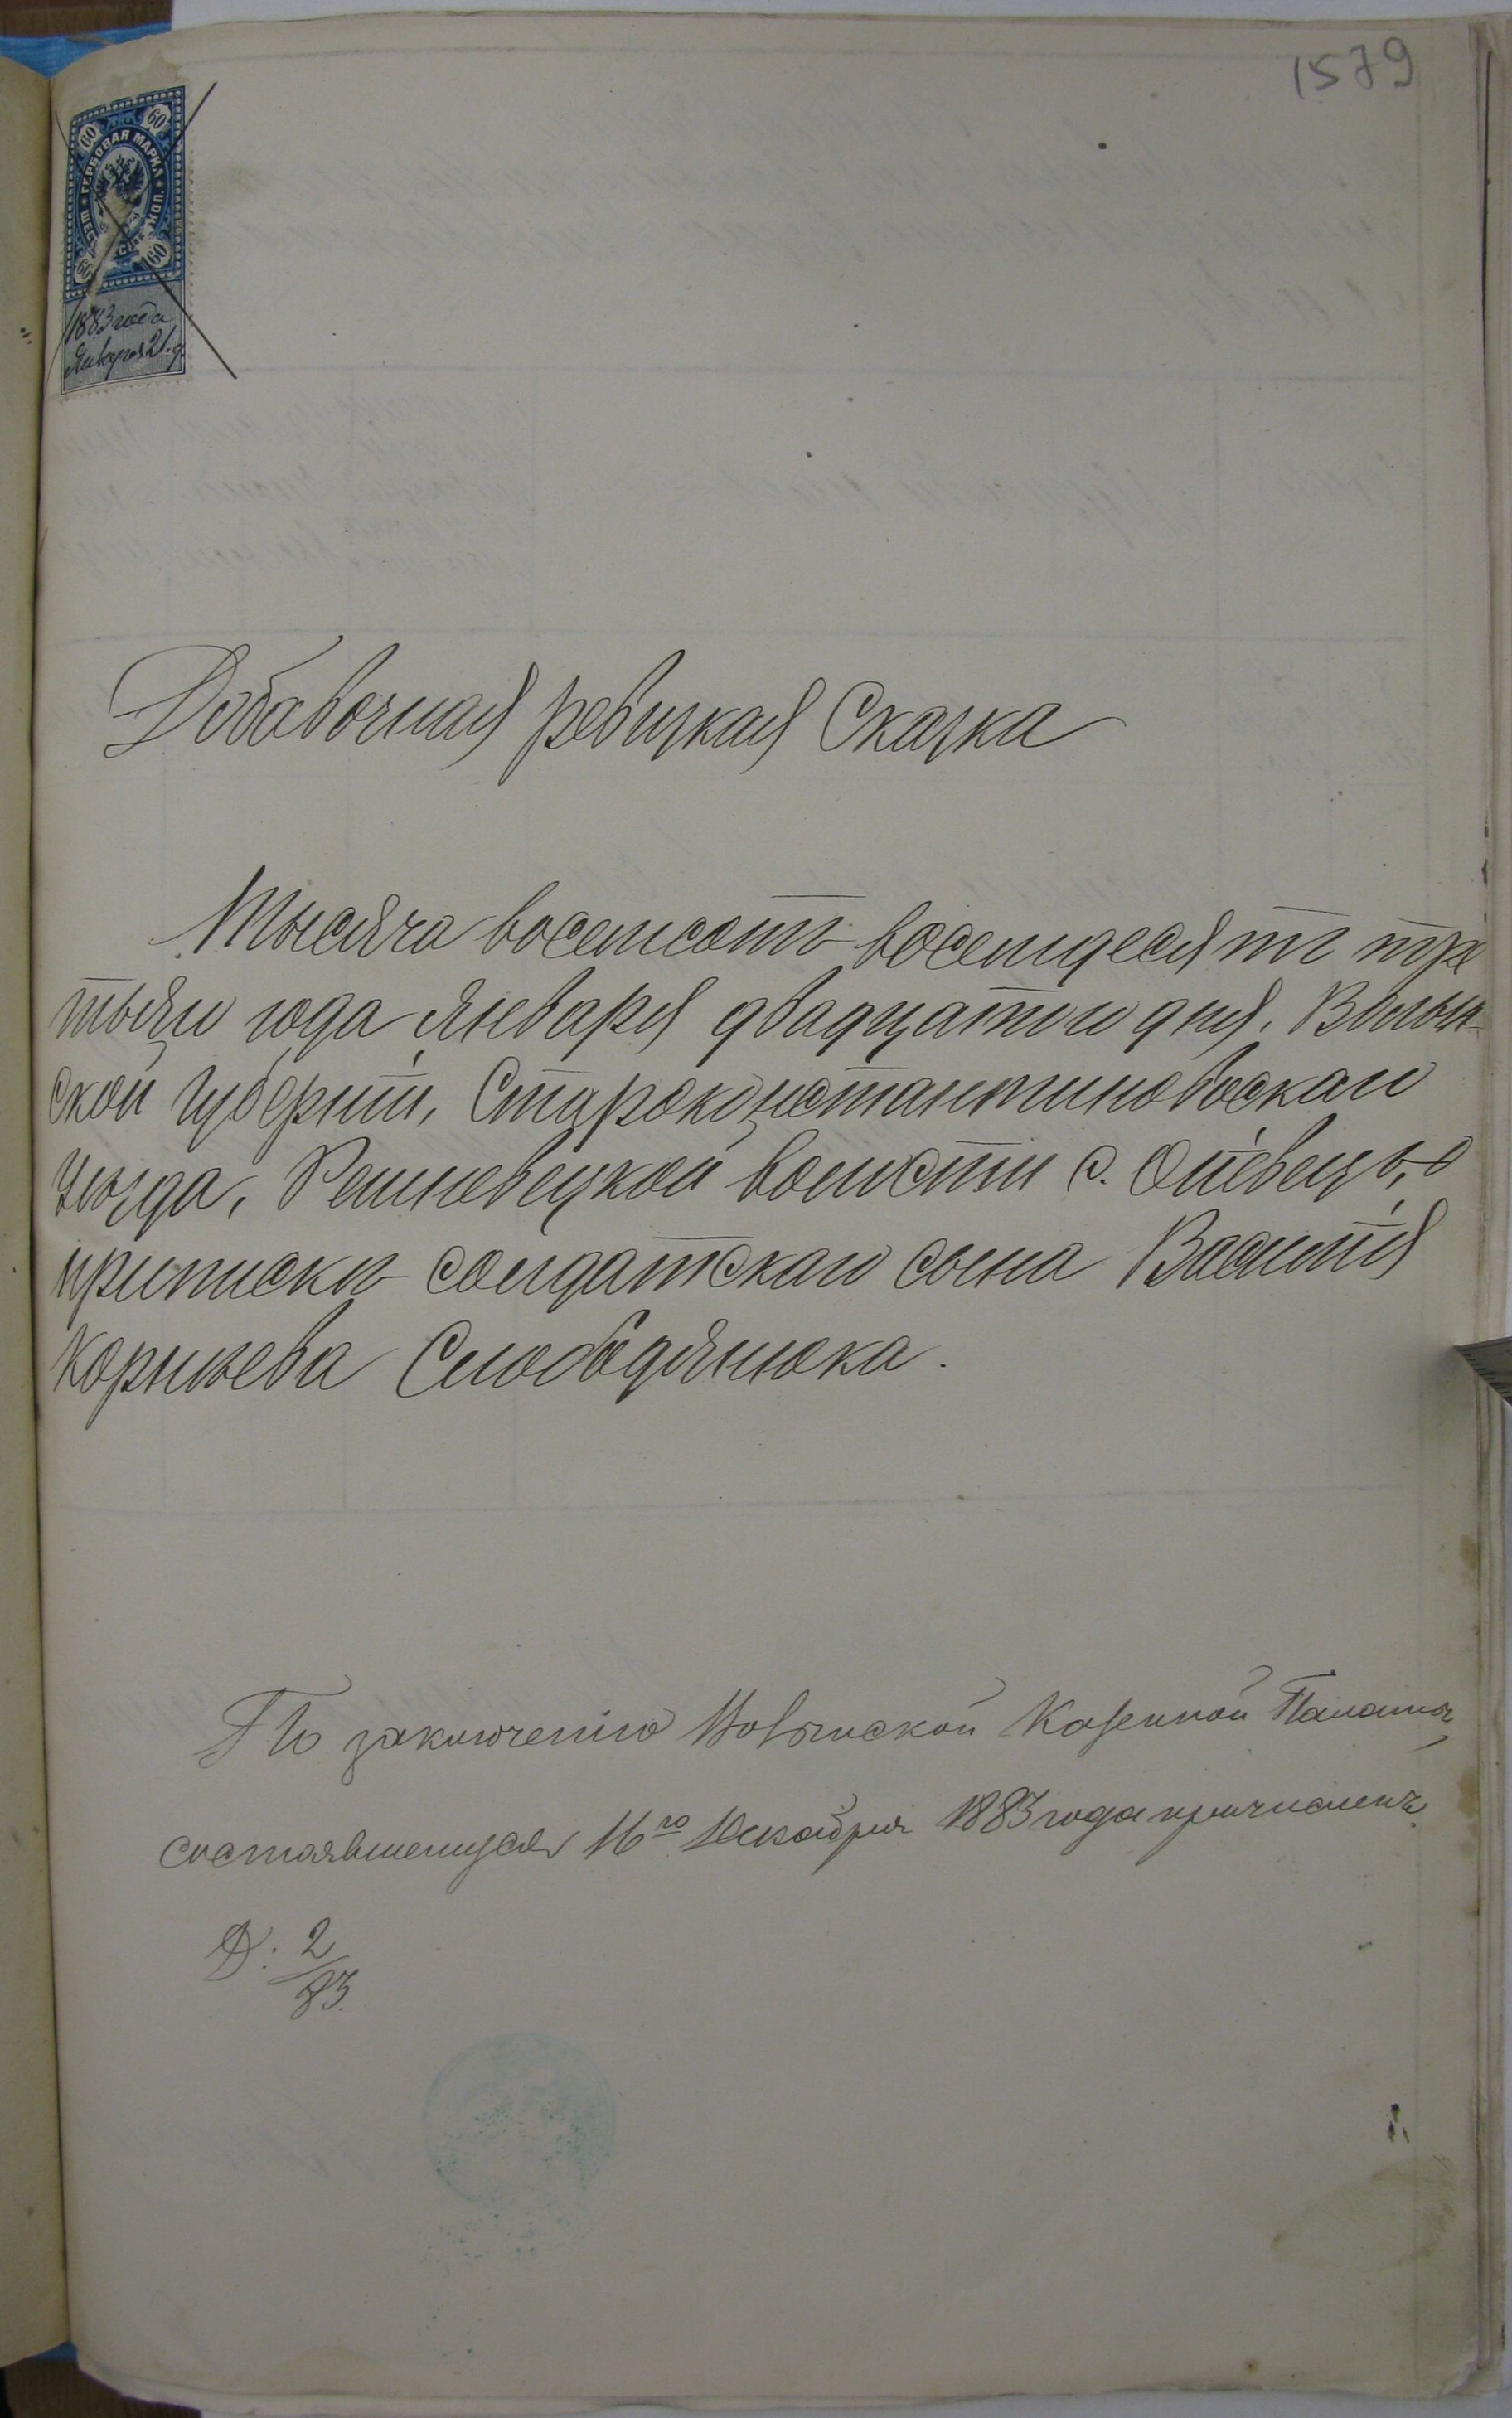 1579
60 60
ГЕРБОВАЯ МАРКА
60 60
1883 года
Января 21. д.
Добавочная ревизкая Сказка
Тысяча восемсотъ восемдесятъ тре
тьяго года Января двадцатого дня, Волын-
ской Губерніи, Староконстантиновоскаго
Уѣзда, Решневецкой волости с.
приписки солдатскаго сына Василія
Корнѣева Слободянюка.
По заключенію Волынской Казенной Палаты,
состоявшемуся 16го Декабря 1883 года причисленъ.
Д: 2/83.